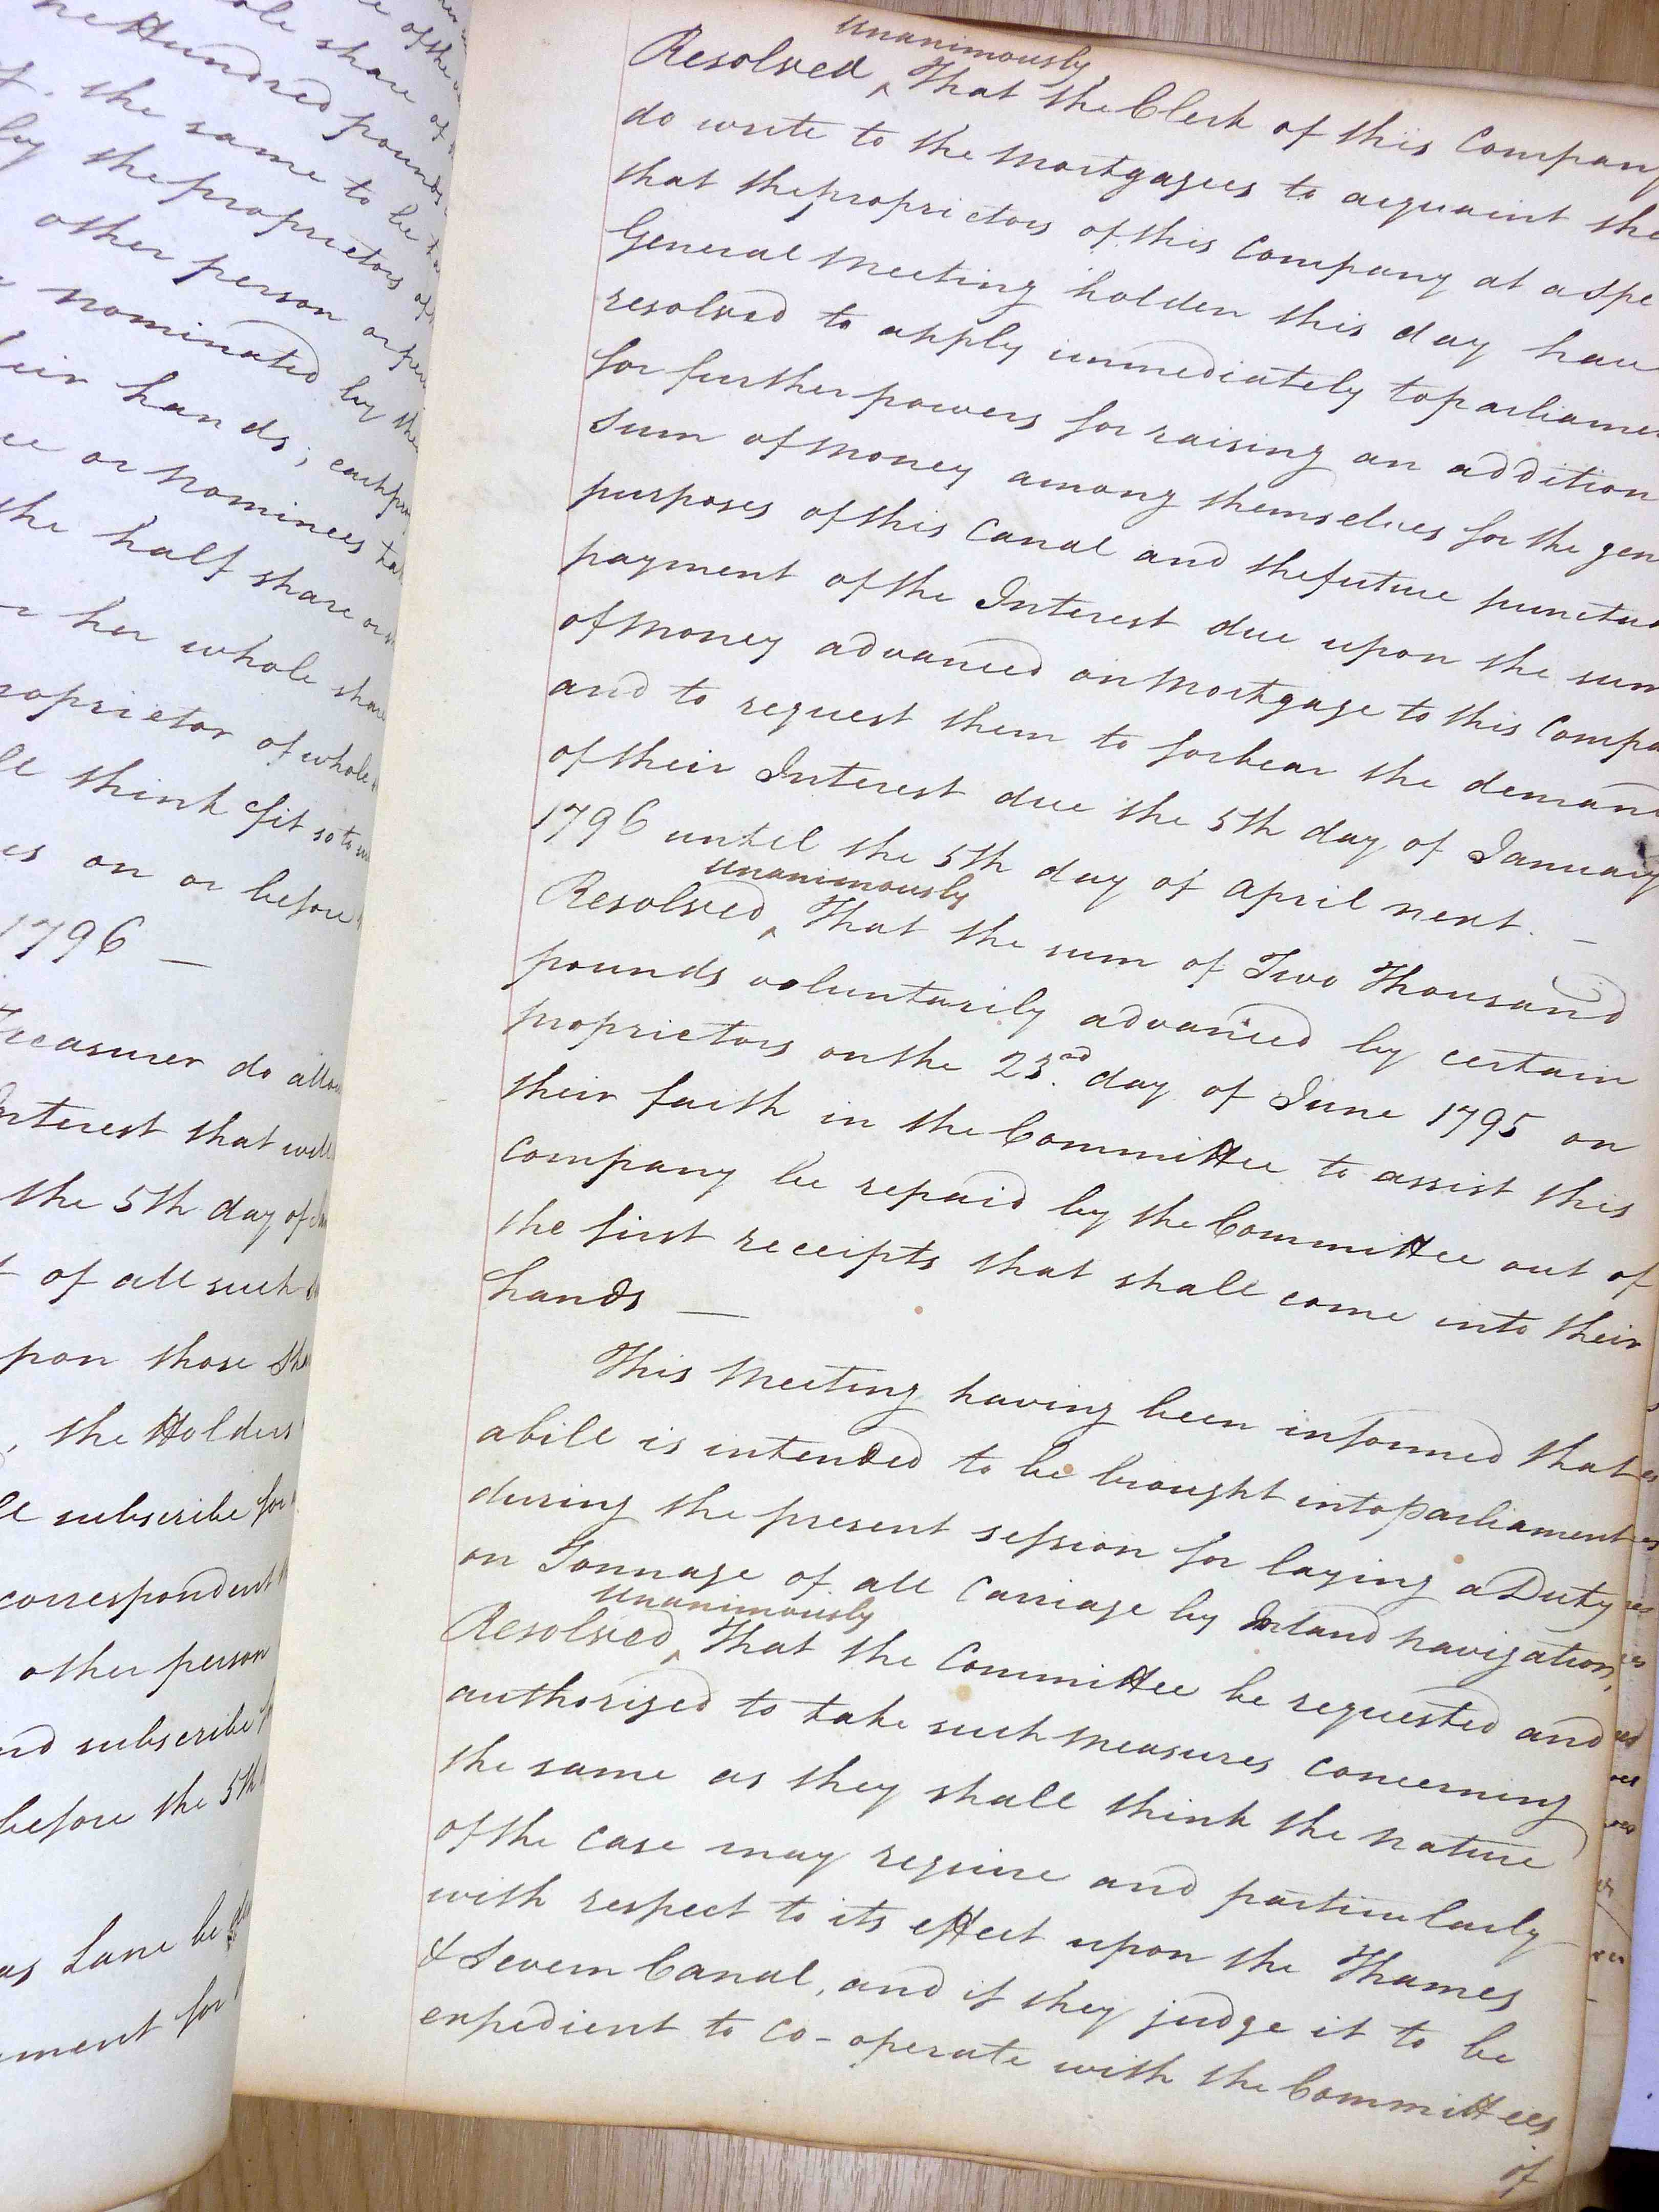 ole share of
ne Hundred pounds
the same to be
by the proprietors of
other person or per
nominated by the
eir hands; each pro
ee or nominees
the half share or
r her whole share
roprietor of whole
ll think fit so to
es on or before
1796 —
Treasurer do allow
Interest that will
the 5th day of
t of all such
pon those Sha
, the Holders
ll subscribe for
correspondent
other person
nd subscribe
before the 5th
as Lane be
ment for
unanimously
Resolved ‸ That the Clerk of this Company
do write to the Mortgagees to acquaint the
that the proprietors of this Company at a Spe
General Meeting holden this day have
resolved to apply immediately to parliamen
for further powers for raising an addition
Sum of Money among themselves for the gen
purposes of this Canal and the future punctua
payment of the Interest due upon the sum
of Money advanced on Mortgage to this Compa
and to request them to forbear the demand
of their Interest due the 5th day of January
1796 until the 5th day of April next. —
unanimously
Resolved ‸ That the sum of Two Thousand
pounds voluntarily advanced by certain
proprietors on the 23rd. day of June 1795 on
their faith in the Committee to assist this
Company be repaid by the Committee out of
the first receipts that shall come into their
hands —
This Meeting having been informed that
a bill is intended to be brought into parliament
during the present session for laying a Duty
on Tonnage of all Carriage by Inland Navigation,
unanimously
Resolved ‸ That the Committee be requested and
authorized to take such Measures concerning
the same as they shall think the Nature
of the Case may require and particularly
with respect to its effect upon the Thames
& Severn Canal, and if they judge it to be
expedient to co-operate with the Committees
of